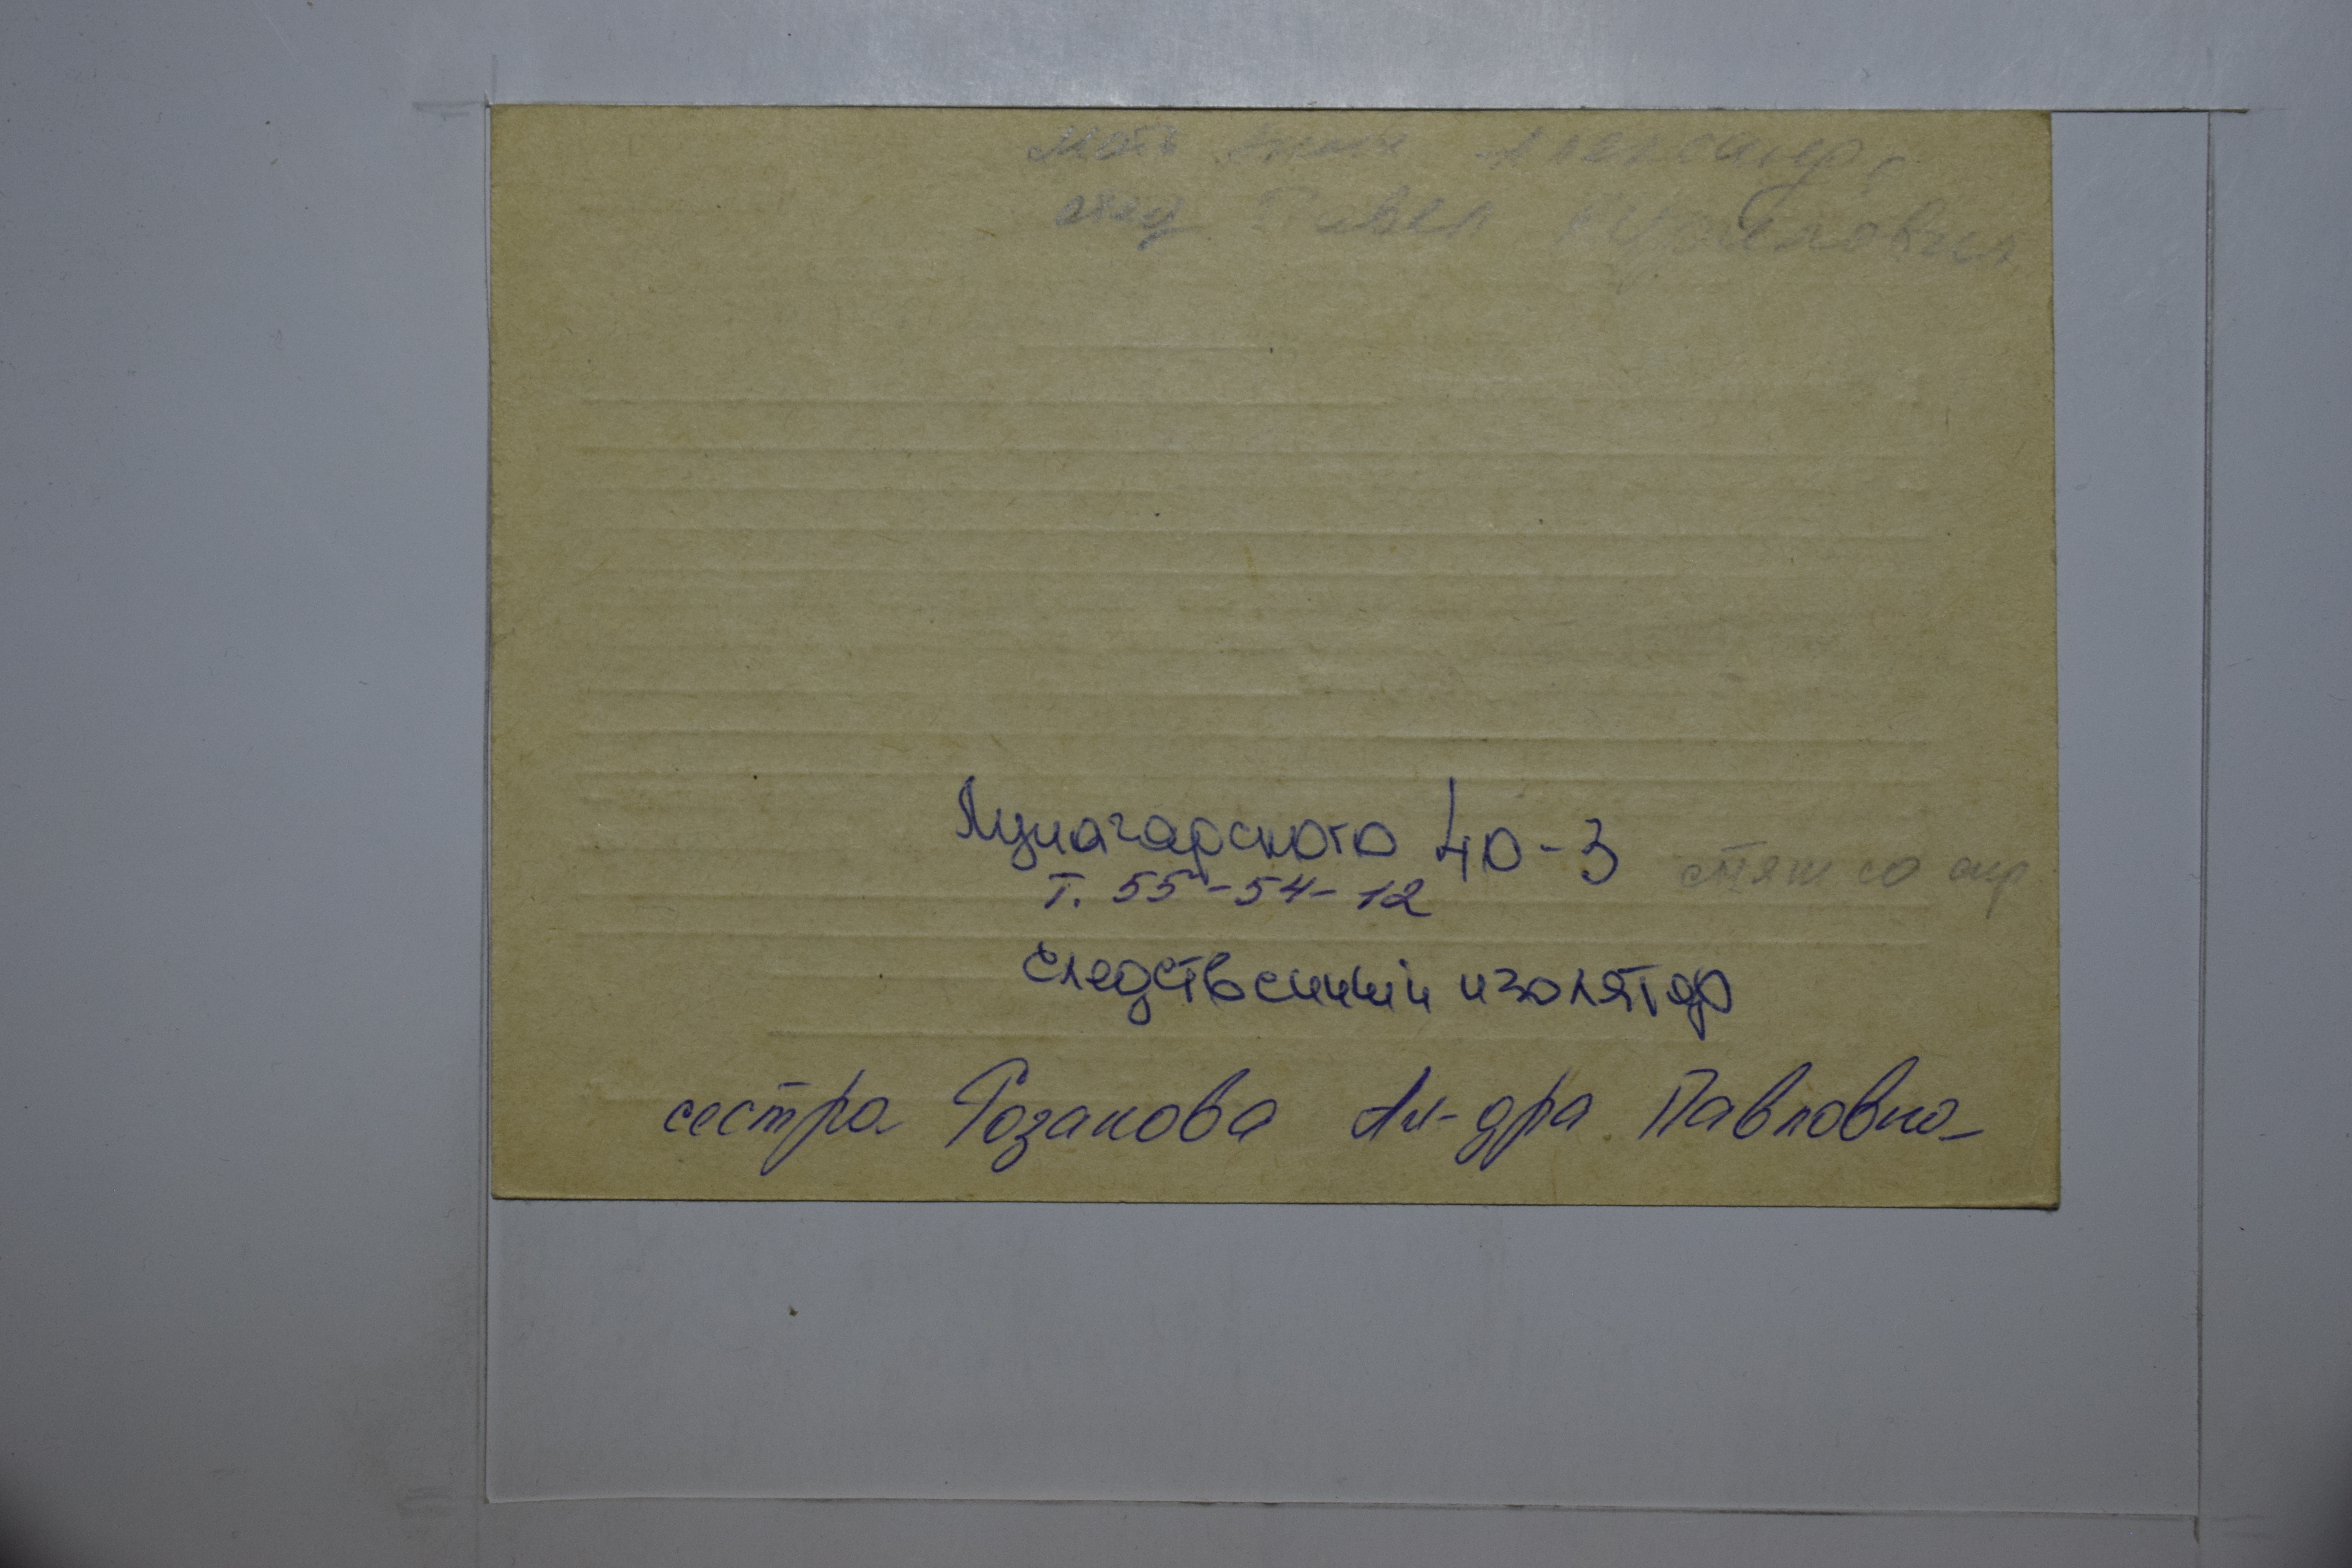 мать Александр.
отец Павел
Луначарского 40-3
Т. 55-54-12
следственный изолятор
сестра Розанова Ал-дра Павловна